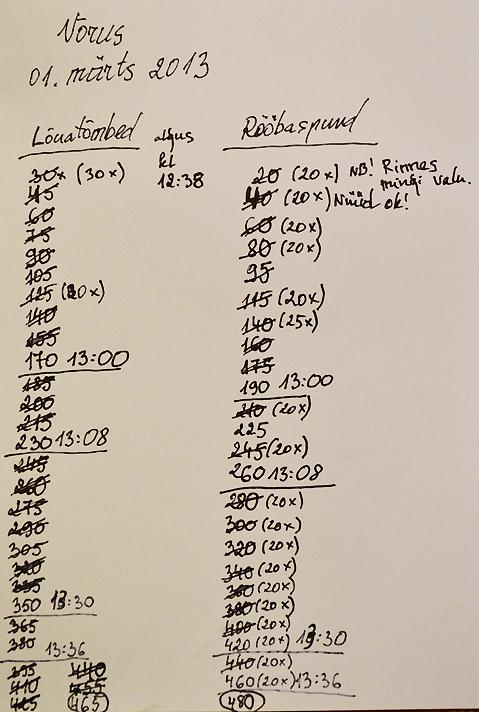 Võrus
01. märts 2013
Lõuatõmbed
algus
kl
12:38
30x (30x)
45
60
75
90
105
125 (20x)
140
155
170 13:00
185
200
215
230 13:08
245
260
275
290
305
320
335
350 13:30
365
380 13:36
395 440
410 455
425 465
Rööbaspuud
20 (20x) NB! Rinnas
mingi valu.
40 (20x) Nüüd ok!
60 (20x)
80 (20x)
95
115 (20x)
140 (25x)
160
175
190 13:00
210 (20x)
225
245 (20x)
260 13:08
280 (20x)
300 (20x)
320 (20x)
340 (20x)
360 (20x)
380 (20x)
400 (20x)
420 (20x) 13:30
440 (20x)
460 (20x) 13:36
480